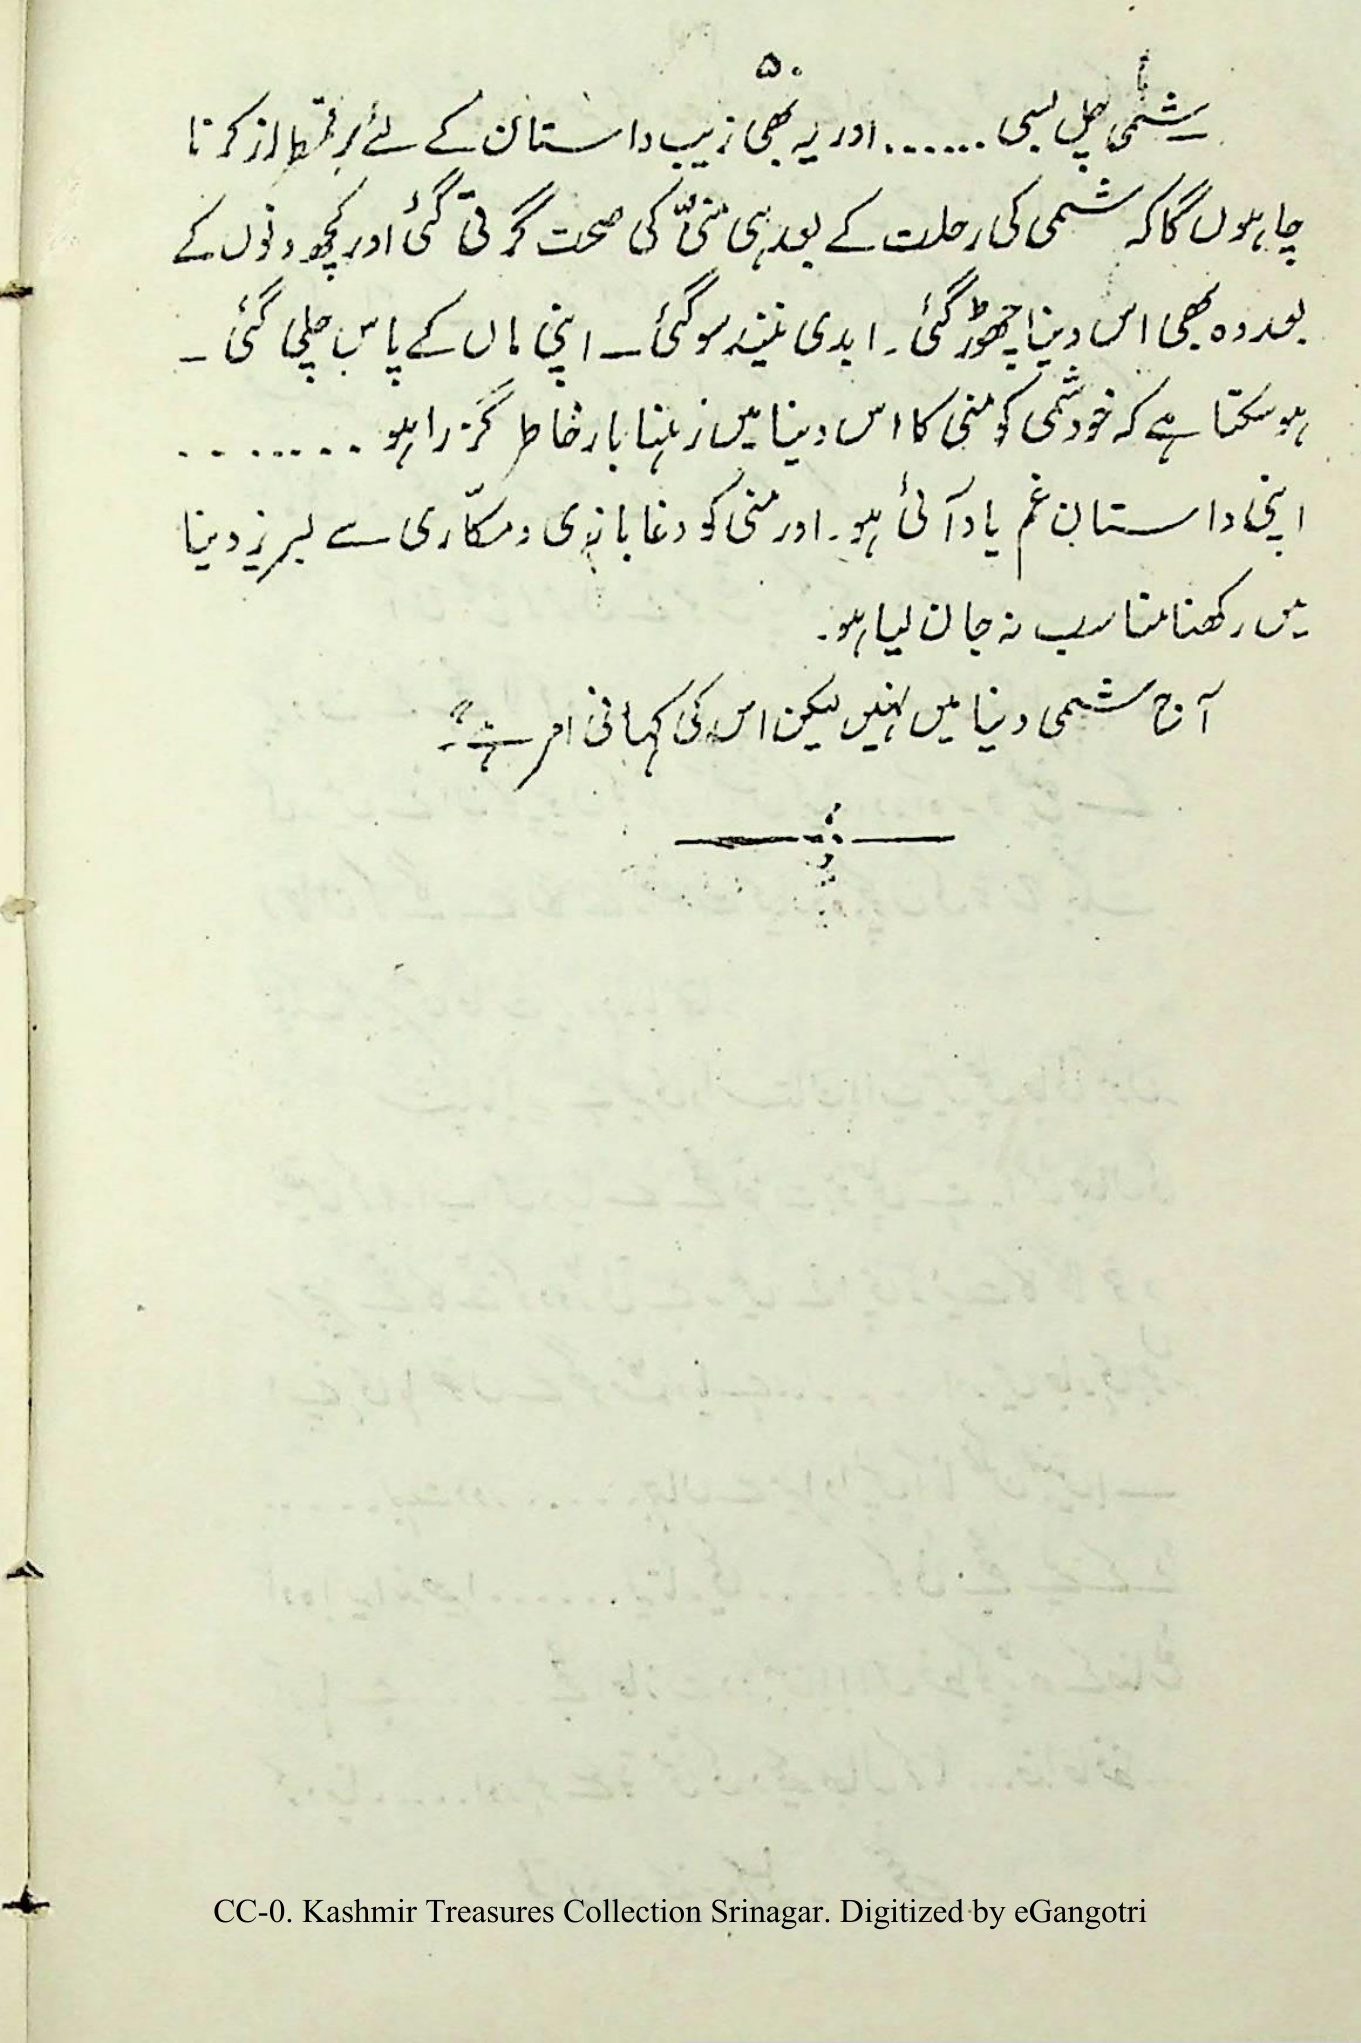 ۵۰
شمی چل بسی ...... اور یہ بھی زیب داستان کے لئے برقمطراز کرنا
چاہوں گا کہ شمی کی رحلت کے بعد ہی منیّ کی صحت گرتی گئی اور کچھ دنوں کے
بعد وہ بھی اس دنیا چھوڑ گئی ۔ ابدی نیند سو گئی ــ اپنی ماں کے پاس چلی گئی ــ
ہو سکتا ہے کہ خود شمی کو منی کا اس دنیا میں رہنا بار خاطر گزرا ہو ........
اپنی داستان غم یاد آئی ہو۔ اور منی کو دغا بازی و مکّاری سے لبریز دنیا
میں رکھنا مناسب نہ جان لیا ہو۔
آج شمی دنیا میں نہیں لیکن اس کی کہانی امر ہے"۔
CC-0. Kashmir Treasures Collection Srinagar. Digitized by eGangotri